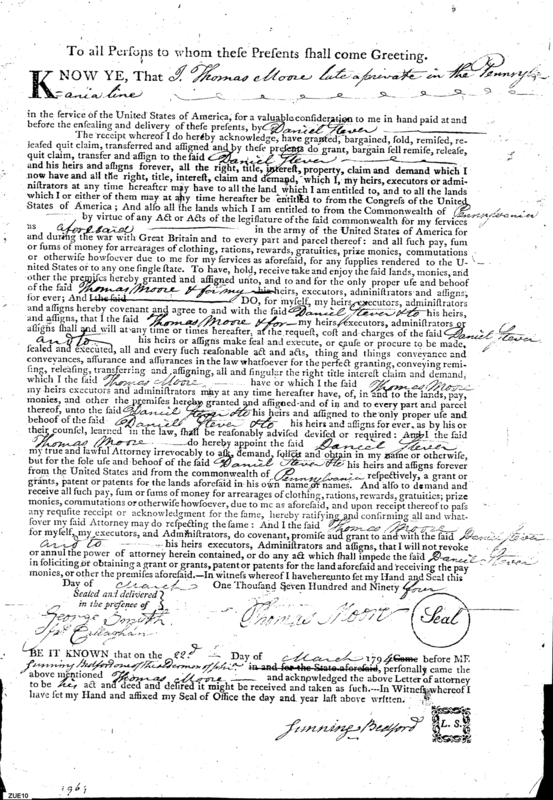 To all Persons to whom these Presents shall come Greeting.
KNOW YE, That I Thomas Moore late a private in the Pennsylv-
-ania line
in the service of the United States of America, for a valuable consideration to me in hand paid at and
before the ensealing and delivery of these presents, by Daniel Stever
The receipt whereof I do hereby acknowledge, have granted, bargained, sold, remised, re-
leased quit claim, transferred and assigned and by these presents do grant, bargain sell remise, release,
quit claim, transfer and assign to the said Daniel Stever
and his heirs and assigns forever, all the right, title, interest, property, claim and demand which I
now have and all the right, title, interest, claim and demand, which I, my heirs, executors or admi-
nistrators at any time hereafter may have to all the land which I am entitled to, and to all the lands
which I or either of them may at any time hereafter be entitled to from the Congress of the United
States of America; And also all the lands which I am entitled to from the Commonwealth of Pennsylvania
by virtue of any Act or Acts of the legislature of the said commonwealth for my services
as aforesaid in the army of the United States of America for
and during the war with Great Britain and to every part and parcel thereof: and all such pay, sum
or sums of money for arrearages of clothing, rations, rewards, gratuities, prize monies, commutations
or otherwise howsoever due to me for my services as aforesaid, for any supplies rendered to the U-
nited States or to any one single state. To have, hold, receive take and enjoy the said lands, monies, and
other the premises hereby granted and assigned unto, and to and for the only proper use and behoof
of the said Thomas Moore & for my heirs, executors, administrators and assigns,
for ever; And I the said DO, for myself, my heirs, executors, administrators
and assigns hereby covenant and agree to and with the said Daniel Stever & to his heirs,
and assigns, that I the said Thomas Moore & for my heirs, executors, administrators or
assigns shall and will at any time or times hereafter, at the request, cost and charges of the said Daniel Stever
and to his heirs or assigns make seal and execute, or cause or procure to be made,
sealed and executed, all and every such reasonable act and acts, thing and things conveyance and
conveyances, assurance and assurances in the law whatsoever for the perfect granting, conveying remi-
sing, releasing, transferring and assigning, all and singular the right title interest claim and demand,
which I the said Thomas Moore have or which I the said Thomas Moore
my heirs executors and administrators may at any time hereafter have, of, in and to the lands, pay,
monies, and other the premises hereby granted and assigned and of in and to every part and parcel
thereof, unto the said Daniel Stever & to his heirs and assigned to the only proper use and
behoof of the said Daniel Stever & to his heirs and assigns for ever, as by his or
their counsel, learned in the law, shall be reasonably advised devised or required: And I the said
Thomas Moore do hereby appoint the said Daniel Stever
my true and lawful Attorney irrevocably to ask, demand, sollicit and obtain in my name or otherwise,
but for the use and behoof of the said Daniel Stever & to his heirs and assigns forever
from the United States and from the commonwealth of Pennsylvania respectively, a grant or
grants, patent or patents for the lands aforesaid in his own name or names. And also to demand and
receive all such pay, sum or sums of money for arrearages of clothing, rations, rewards, gratuities; prize
monies, commutations or otherwise howsoever, due to me as aforesaid, and upon receipt thereof to pass
any requisite receipt or acknowledgment for the same, hereby ratifying and confirming all and what-
soever my said Attorney may do respecting the same: And I the said Thomas Moore
for myself, my executors, and Administrators, do covenant, promise and grant to and with the said Daniel Stever
and to his heirs executors, Administrators and assigns, that I will not revoke
or annul the power of attorney herein contained, or do any act which shall impede the said Daniel Stever
in soliciting or obtaining a grant or grants, patent or patents for the land aforesaid and receiving the pay
monies, or other the premises aforesaid.—In witness whereof I have hereunto set my Hand and Seal this
Day of March One Thousand Seven Hundred and Ninety four
Sealed and delivered
in the presence of
George Smith
Jos. Callaghan
Thomas Moore
Seal
BE IT KNOWN that on the 22d Day of March 1794 Came before ME
Gunning Bedford one of the aldermen of in and for the State aforesaid, personally came the
above mentioned Thomas Moore and acknowledged the above Letter of attorney
to be his act and deed and desired it might be received and taken as such.—In Witness whereof I
have set my Hand and affixed my Seal of Office the day and year last above written.
Gunning Bedford
L. S.
1969
ZUE10